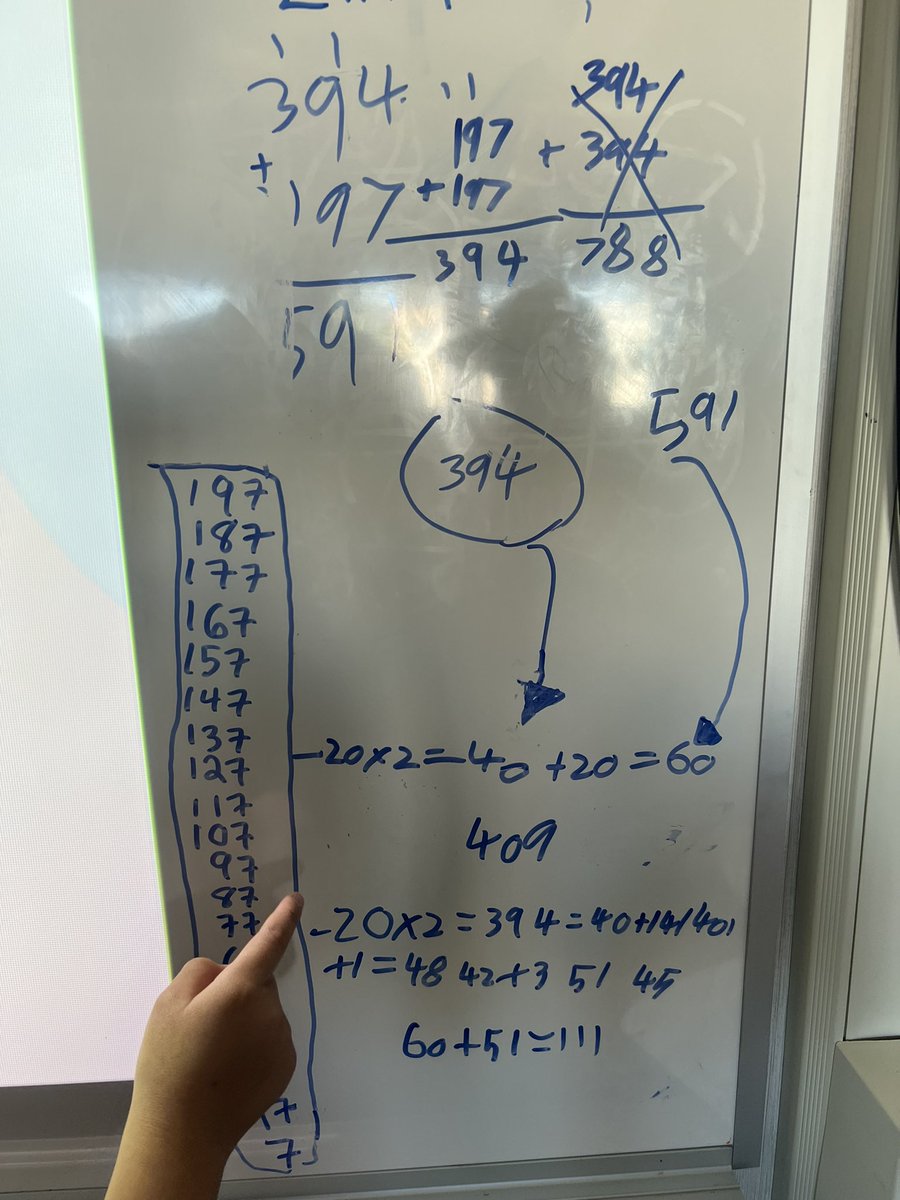 394
+ 197
591
197
+197
394
394
+ 394
788
591
394
197
187
177
167
157
147
137
127
117
107
97
87
77
7
-20×2=40 +20=60
409
-20×2=394=40+1
+1=48 42+3 51 45
60+51=111